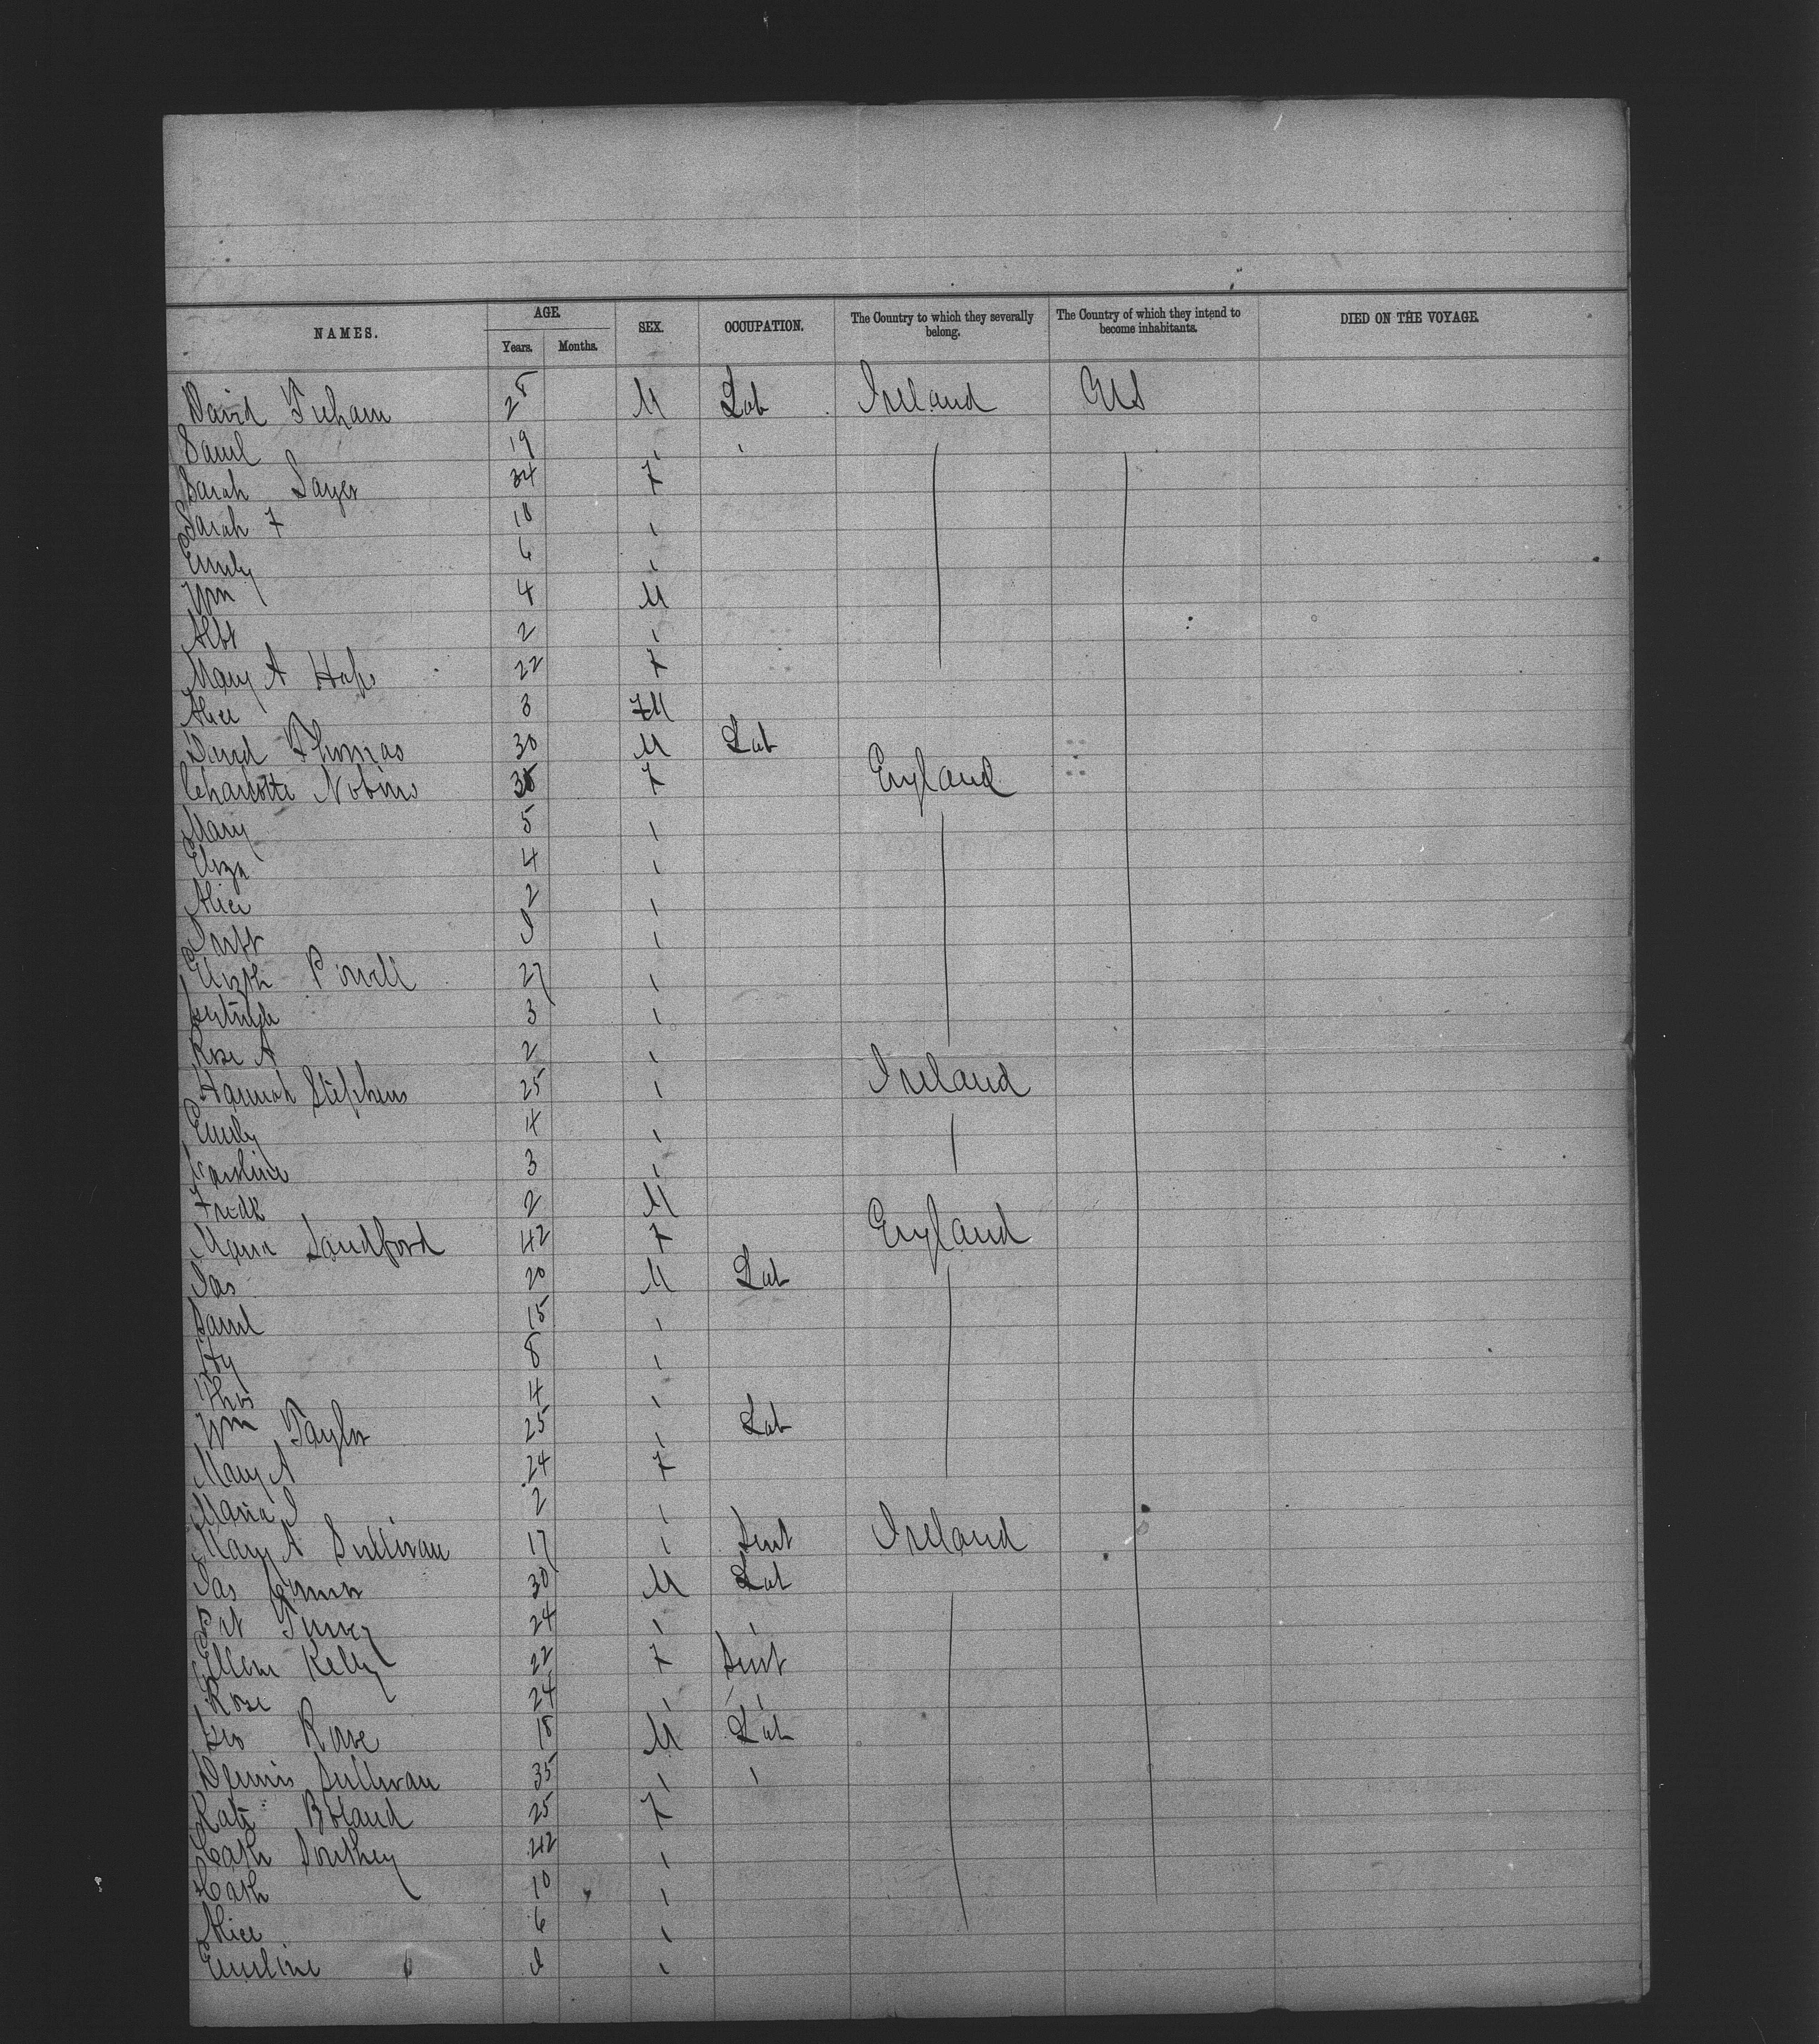 NAMES. AGE. SEX. OCCUPATION. The Country to which they severally belong. The Country of which they intend to become inhabitants. DIED ON THE VOYAGE.
Years. Months.
David 28 M Lab Ireland US
Saml 19 "
Sarah Sayer 34 F
Sarah F 10 "
Emily 6 "
Wm 4 M
Albt 2 "
Mary A 22 F
Alice 3 FM
David Thomas 30 M Lab
Charlotte Nobins 35 F England
Mary 5 "
Eliza 4 "
Alice 2 "
I "
Elizth Powell 27 "
Gertrude 3 "
Rose A 2 "
Hannah Stephens 25 " Ireland
Emily 4 "
Caroline 3 "
Fredk 2 M
Maria Sandford 42 F England
Jas 20 M Lab
Saml 15 "
Hy 8 "
Thos 4 "
Wm Taylor 25 " Lab
Mary A 24 F
Maria J 2 "
Mary A Sullivan 17 " Servt Ireland
Jas Connor 30 M Lab
Pat 24 " "
Ellen Kelly 22 F Servt
Rose 24 " "
Geo Rowe 18 M Lab
Dennis Sullivan 35 " "
Kate Boland 25 F
Cath Southey 42 "
Cath 10 "
Alice 6 "
Emeline I "